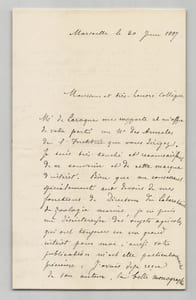 Marseille le 20 Juin 1887
Monsieur et très honoré Collègue
Mr de                     me rapporte et m'offre
de votre part un No des Annales
de l'Institut que vous dirigez.
Je suis très touché et reconnaissant
de ce souvenir et de cette marque
d'intérêt. Bien que me consacrant
spécialement aux devoirs de mes
fonctions de Directeur du Laboratoire
de Zoologie marine, je ne puis
me désintéresser des sujets
qui ont toujours eu un grand
intérêt pour moi, aussi votre
publication m'est elle particulièrement
précieuse. J'avais déjà reçu
de son auteur, la belle